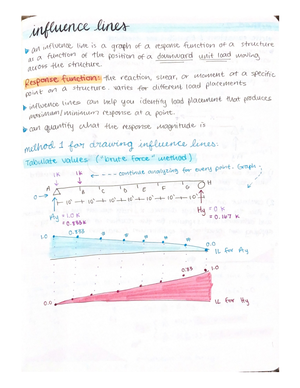 influence lines
an influence line is a graph of a response function of a structure
as a function of the position of a downward unit load moving
across the structure.
Response function: the reaction, shear, or moment at a specific
point on a structure. varies for different load placements
influence lines can help you identify load placement that produces
maximum/minimum response at a point.
can quantify what the response magnitude is
method 1 for drawing influence lines:
Tabulate values ("brute force" method)
1K 1K continue analyzing for every point. Graph
A B C D E F G H
10' 10' 10' 10' 10' 10'
Ay = 1.0 K Hy = 0 K
= 0.833 K = 0.167 K
1.0 0.833
0.0
IL for Ay
0.83 1.0
0.0
IL for Hy